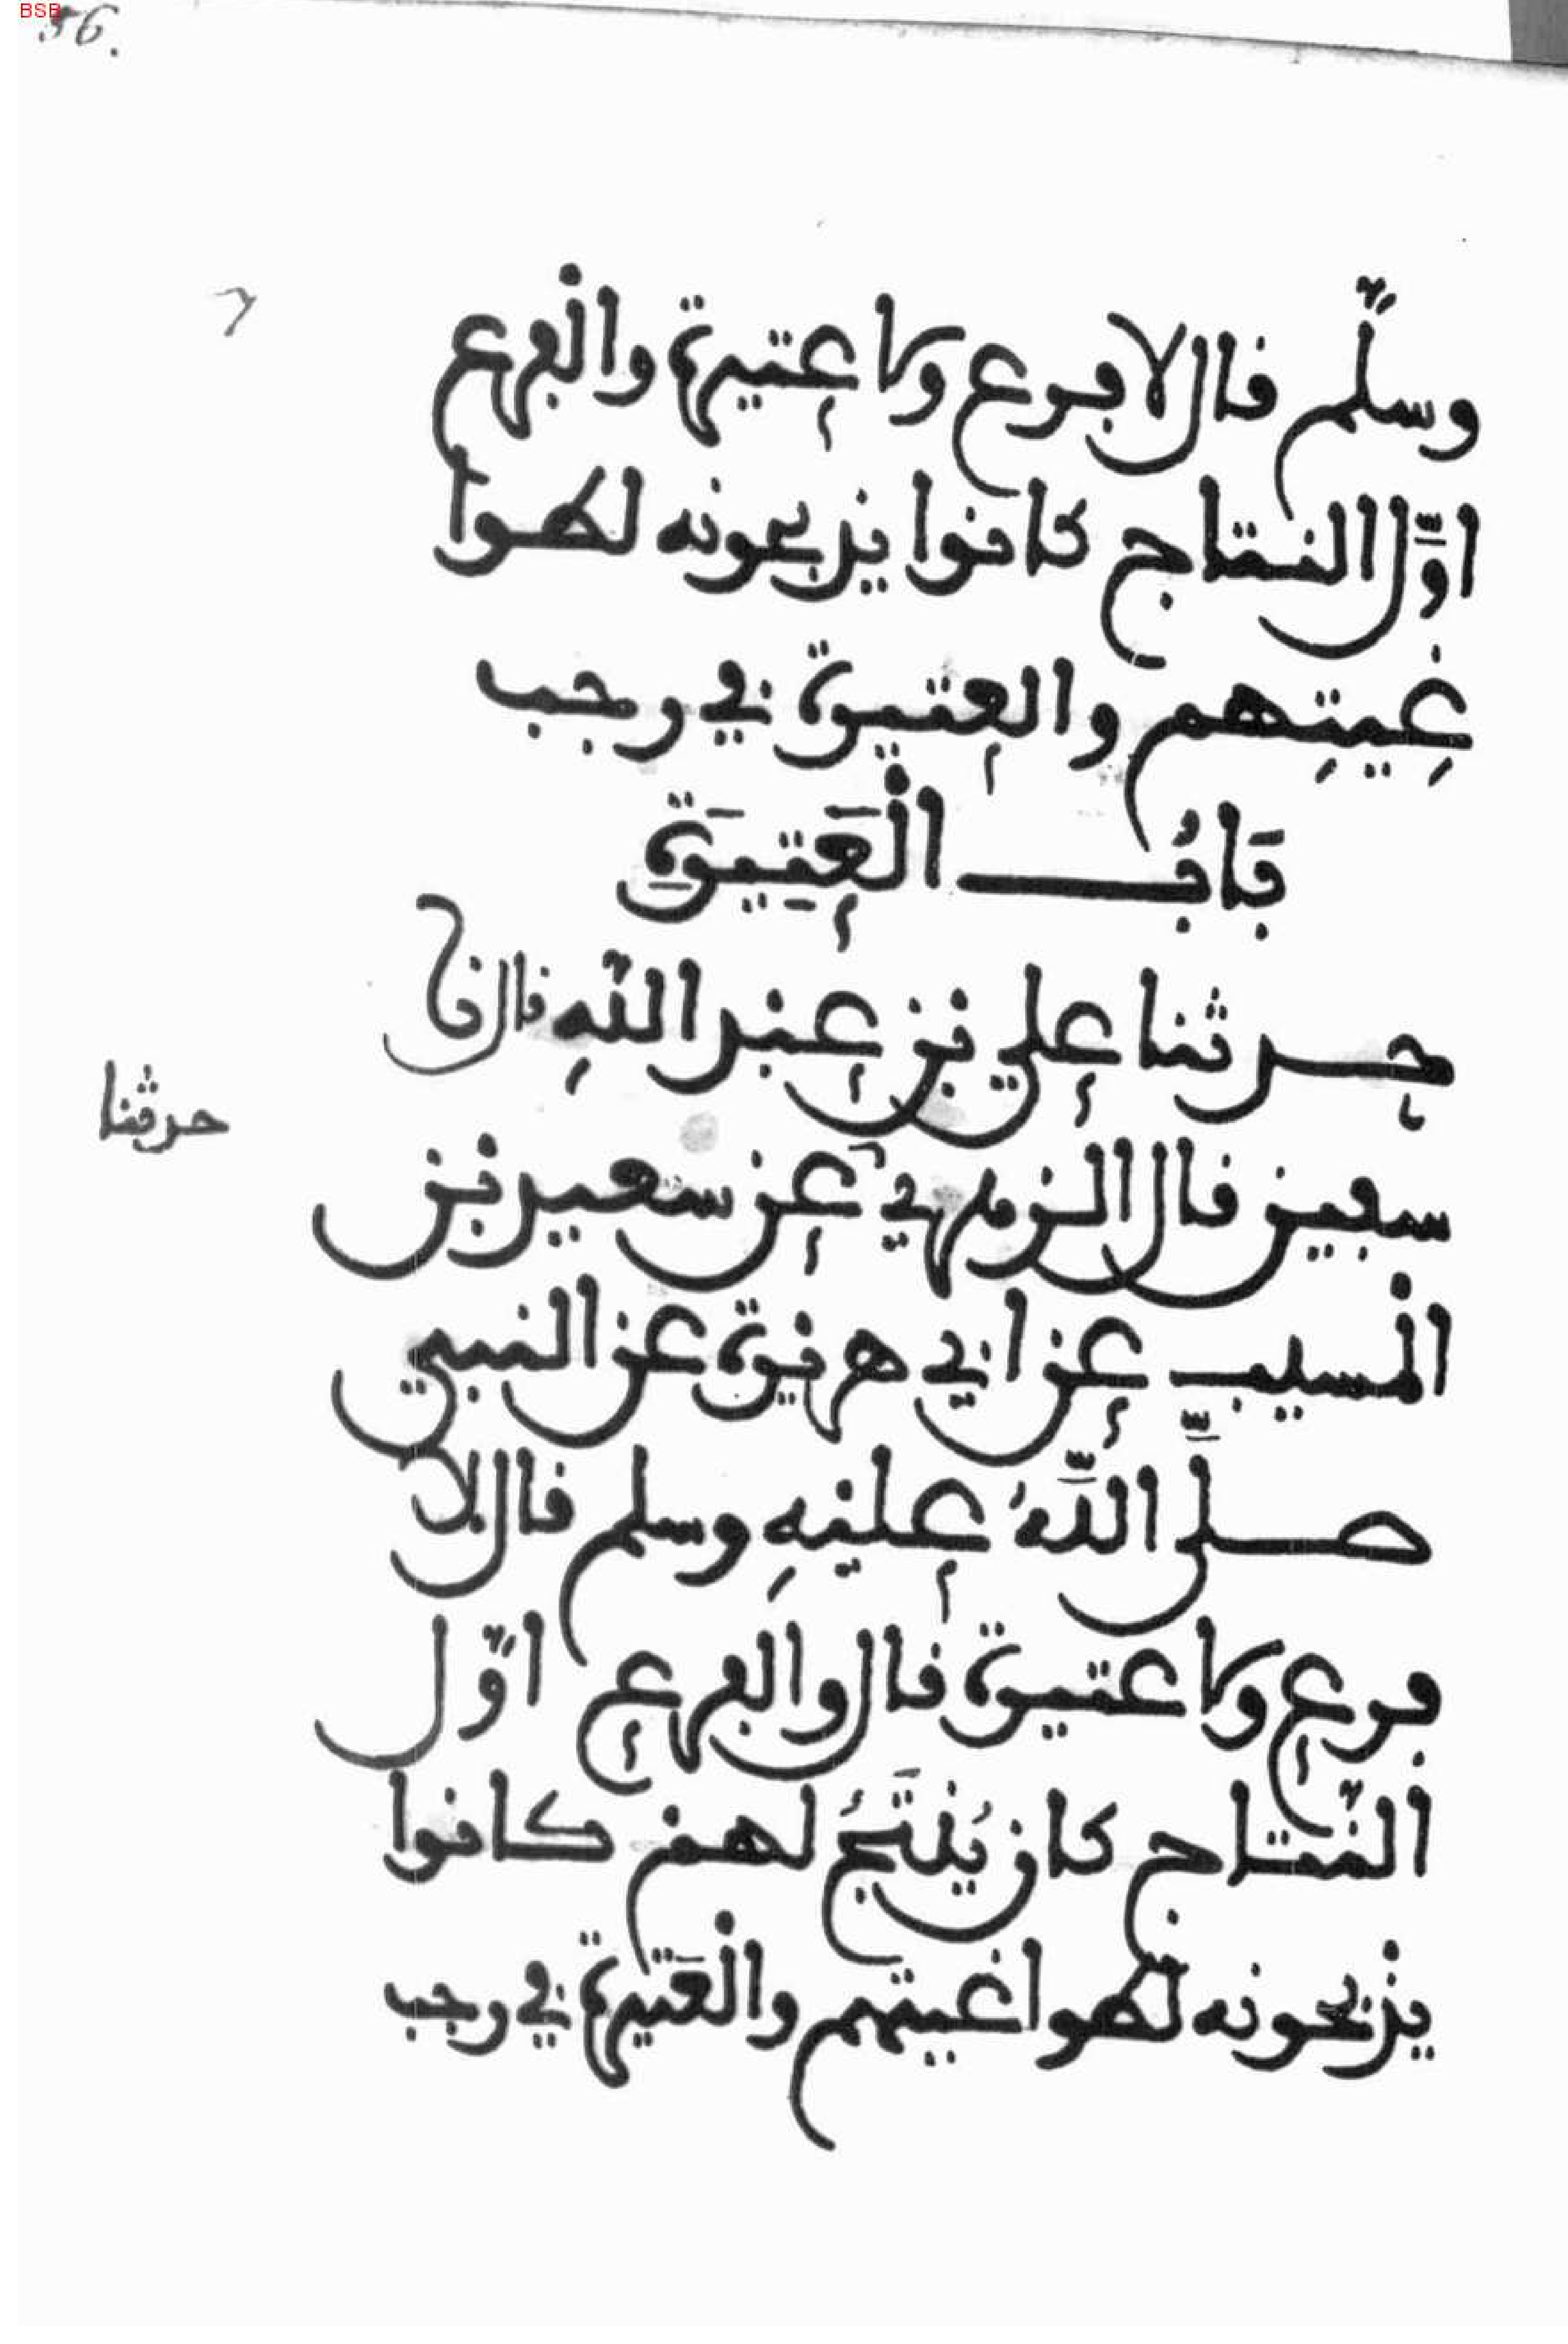 BSB
56.
وسلّم قال لا فرع ولا عتيرة والْفرع
اوّل النتاج كانوا يذبحونه لطوا
غِيتِهم والعتيرة في رجب
بَابُ الْعَتِيرَةِ
حدثنا علي بن عبد اللّهِ قال
حدثنا
سفين قال الزهري عن سعيد بن
المْسيب عن ابي هريرة عن النبي
صلَّى اللَّهُ عليْهِ وسلم قال لا
فرع ولا عتيرة قال والفرع اوّل
النّتاج كان يُنْتَجُ لهمْ كانوا
يذْبحونه لطواغيتهم والْعَتيرة في رجب